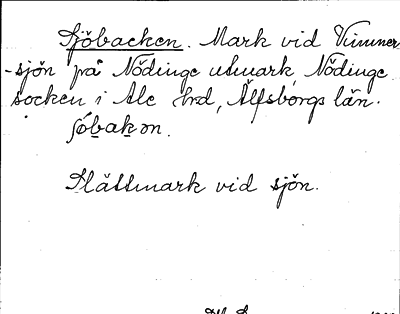 Sjöbacken. Mark vid Vimmer-
-sjön på Nödinge utmark Nödinge
socken i Ale hrd, Älfsborgs län.
sóbakon.
Slättmark vid sjön.